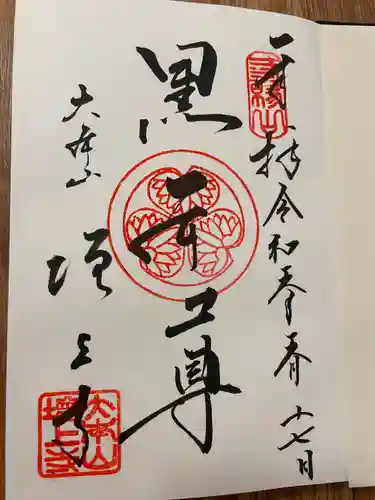 奉拝 令和 十七日
三縁山
黒本尊
大本山
増上寺
大本山
増上寺